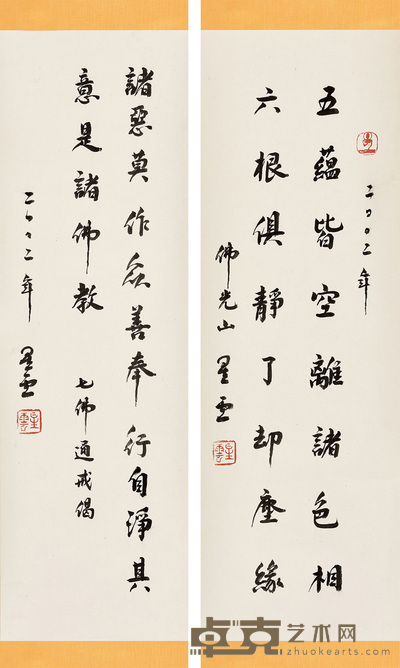 二〇〇二年
五蘊皆空離諸色相
六根俱靜了却塵緣
佛光山 星雲
星雲
諸惡莫作眾善奉行自淨其
意是諸佛教 七佛通戒偈
二〇〇二年 星雲
星雲
卓克艺术网
zhuokearts.com